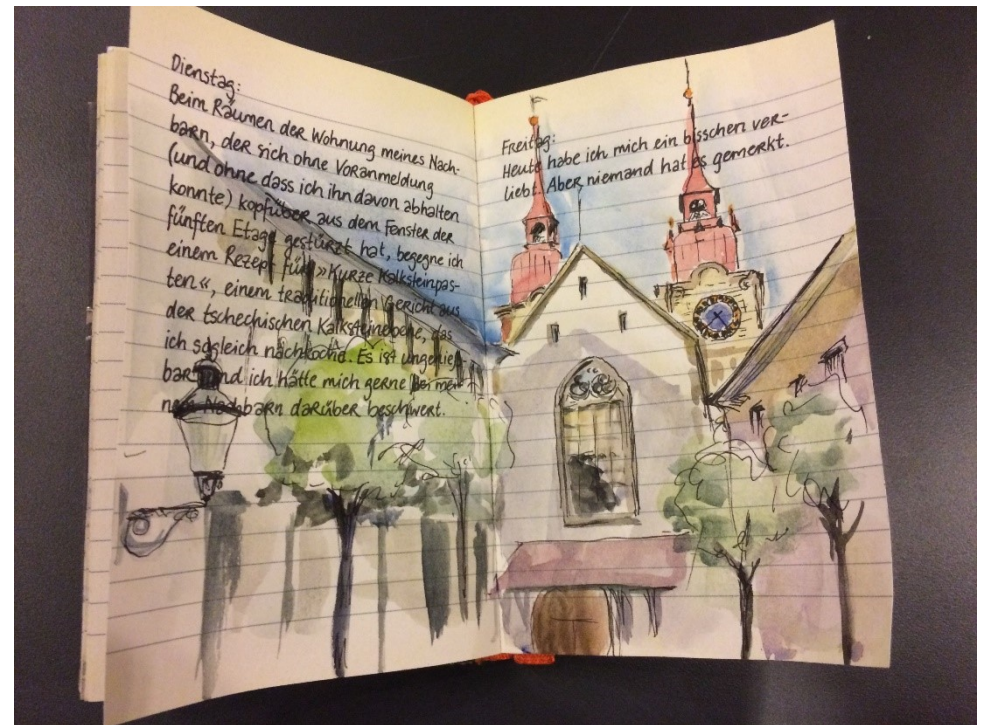 Dienstag:
Beim Räumen der Wohnung meines Nach-
barn, der sich ohne Voranmeldung
(und ohne dass ich ihn davon abhalten
konnte) kopfüber aus dem Fenster der
fünften Etage gestürzt hat, begegne ich
einem Rezept für »Kurze Kalksteinpas-
ten«, einem traditionellen Gericht aus
der tschechischen Kalksteinebene, das
ich sogleich nachkoche. Es ist ungenieß-
bar und ich hätte mich gerne bei mei-
nem Nachbarn darüber beschwert.
Freitag:
Heute habe ich mich ein bisschen ver-
liebt. Aber niemand hat es gemerkt.